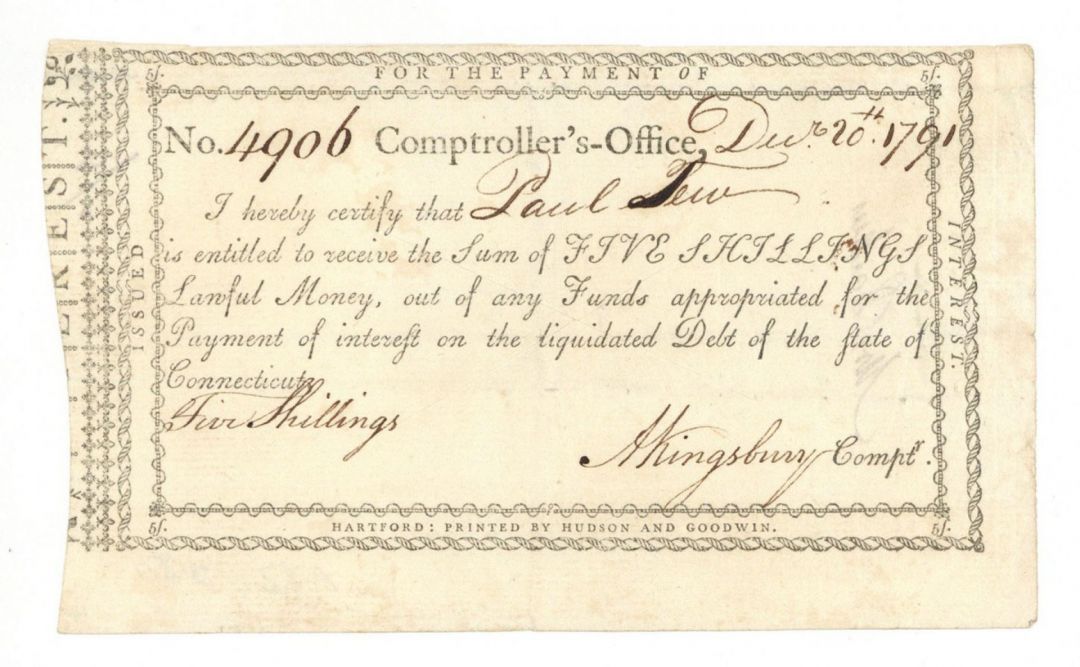 FOR THE PAYMENT OF
5/.
5/.
No. 4906 Comptroller's-Office, Decr. 20th. 1791
I hereby certify that Paul Tew
is entitled to receive the Sum of FIVE SHILLINGS
Lawful Money, out of any Funds appropriated for the
Payment of intereſt on the liquidated Debt of the ſtate of
Connecticut.
Five Shillings
AKingsbury Comptr.
5/.
5/.
HARTFORD: PRINTED BY HUDSON AND GOODWIN.
ISSUED
INTEREST.